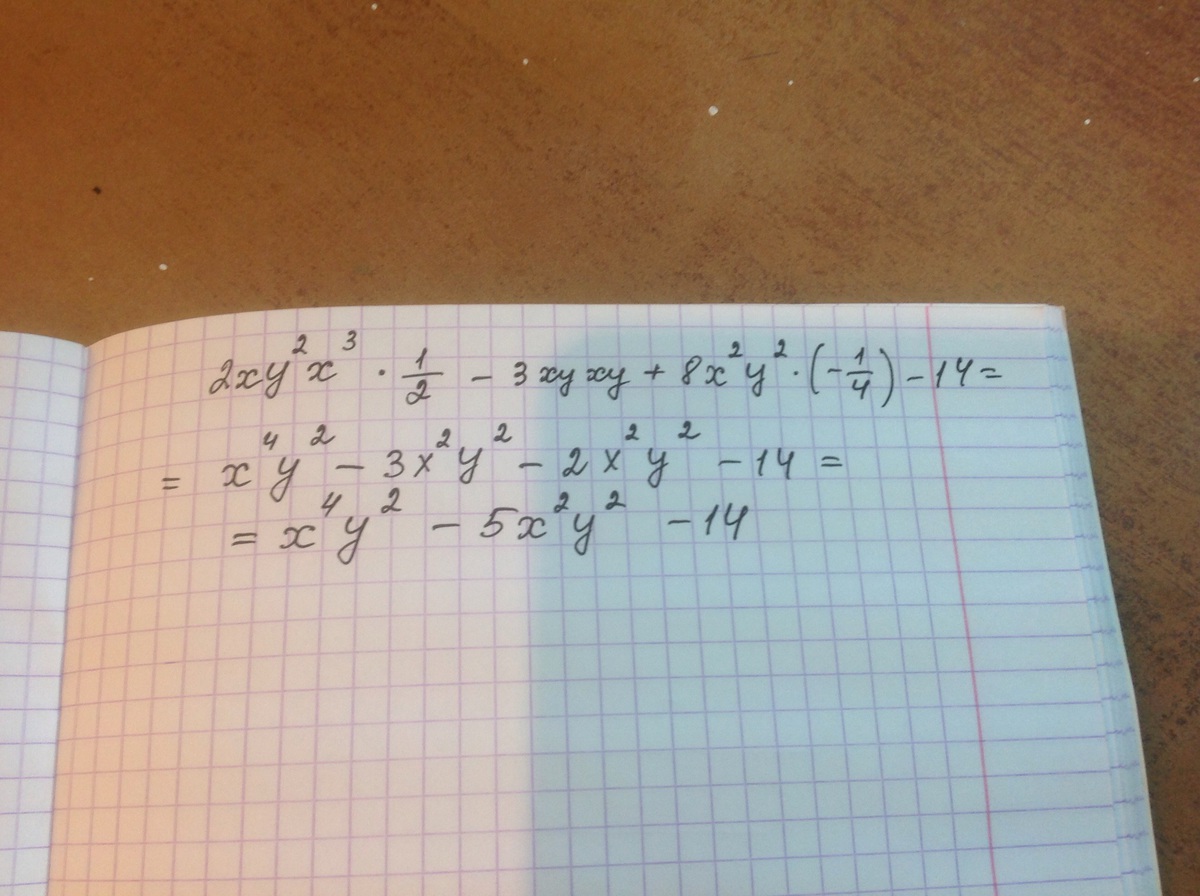 2xy²x³ · 1/2 − 3xyxy + 8x²y² · (−1/4) − 14 =
= x⁴y² − 3x²y² − 2x²y² − 14 =
= x⁴y² − 5x²y² − 14